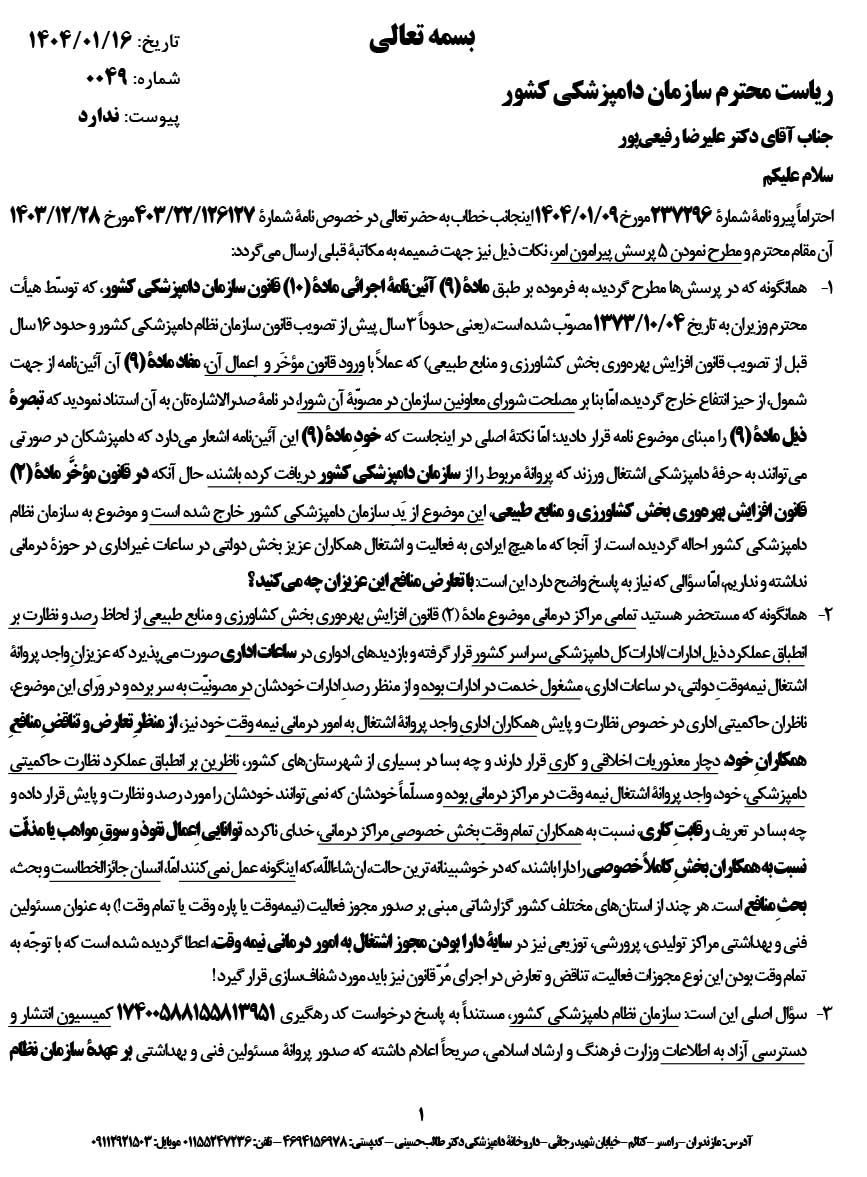 بسمه تعالی
تاریخ: ۱۴۰۴/۰۱/۱۶
شماره: ۰۰۴۹
پیوست: ندارد
ریاست محترم سازمان دامپزشکی کشور
جناب آقای دکتر علیرضا رفیعی‌پور
سلام علیکم
احتراماً پیرو نامهٔ شمارهٔ ۲۳۷۲۹۶ مورخ ۱۴۰۴/۰۱/۰۹ اینجانب خطاب به حضرتعالی در خصوص نامهٔ شمارهٔ ۴۰۳/۲۲/۱۲۶۱۲۷ مورخ ۱۴۰۳/۱۲/۲۸
آن مقام محترم و مطرح نمودن ۵ پرسش پیرامون امر، نکات ذیل نیز جهت ضمیمه به مکاتبهٔ قبلی ارسال می‌گردد:
۱- همانگونه که در پرسش‌ها مطرح گردید، به فرموده بر طبق مادهٔ (۹) آئین‌نامهٔ اجرائی مادهٔ (۱۰) قانون سازمان دامپزشکی کشور، که توسّط هیأت
محترم وزیران به تاریخ ۱۳۷۳/۱۰/۰۴ مصوّب شده است، (یعنی حدوداً ۳ سال پیش از تصویب قانون سازمان نظام دامپزشکی کشور و حدود ۱۶ سال
قبل از تصویب قانون افزایش بهره‌وری بخش کشاورزی و منابع طبیعی) که عملاً با ورود قانون مؤخَر و اِعمال آن، مفاد مادهٔ (۹) آن آئین‌نامه از جهت
شمول، از حیز انتفاع خارج گردیده، امّا بنا بر مصلحت شورای معاونین سازمان در مصوبّهٔ آن شورا، در نامهٔ صدرالاشاره‌تان به آن استناد نمودید که تبصرهٔ
ذیل مادهٔ (۹) را مبنای موضوع نامه قرار دادید؛ امّا نکتهٔ اصلی در اینجاست که خودِ مادهٔ (۹) این آئین‌نامه اشعار می‌دارد که دامپزشکان در صورتی
می‌توانند به حرفهٔ دامپزشکی اشتغال ورزند که پروانهٔ مربوط را از سازمان دامپزشکی کشور دریافت کرده باشند، حال آنکه در قانون مؤخَّر مادهٔ (۲)
قانون افزایش بهره‌وری بخش کشاورزی و منابع طبیعی، این موضوع از یَد سازمان دامپزشکی کشور خارج شده است و موضوع به سازمان نظام
دامپزشکی کشور احاله گردیده است. از آنجا که ما هیچ ایرادی به فعالیت و اشتغال همکاران عزیز بخش دولتی در ساعات غیراداری در حوزهٔ درمانی
نداشته و نداریم، امّا سؤالی که نیاز به پاسخ واضح دارد این است: با تعارض منافع این عزیزان چه می‌کنید؟
۲- همانگونه که مستحضر هستید تمامی مراکز درمانی موضوع مادهٔ (۲) قانون افزایش بهره‌وری بخش کشاورزی و منابع طبیعی از لحاظ رصد و نظارت بر
انطباق عملکرد ذیل ادارات/ادارات‌کل دامپزشکی سراسر کشور قرار گرفته و بازدیدهای ادواری در ساعات اداری صورت می‌پذیرد که عزیزانِ واجد پروانهٔ
اشتغال نیمه‌وقتِ دولتی، در ساعات اداری، مشغول خدمت در ادارات بوده و از منظر رصدِ ادارات خودشان در مصونیّت به سر برده و در وَرای این موضوع،
ناظران حاکمیتی اداری در خصوص نظارت و پایش همکاران اداری واجد پروانهٔ اشتغال به امور درمانی نیمه وقت خود نیز، از منظرِ تعارض و تناقضِ منافعِ
همکارانِ خود، دچار معذوریات اخلاقی و کاری قرار دارند و چه بسا در بسیاری از شهرستان‌های کشور، ناظرین بر انطباق عملکرد نظارت حاکمیتی
دامپزشکی، خود، واجد پروانهٔ اشتغال نیمه وقت در مراکز درمانی بوده و مسلّماً خودشان که نمی‌توانند خودشان را مورد رصد و نظارت و پایش قرار داده و
چه بسا در تعریف رقابتِ کاری، نسبت به همکارانِ تمام وقت بخش خصوصیِ مراکز درمانی، خدای ناکرده توانایی اِعمال نفوذ و سوقِ مواهب یا مذلّت
نسبت به همکاران بخشِ کاملاً خصوصی را دارا باشند، که در خوشبینانه ترین حالت، ان‌شاءاللّه، که اینگونه عمل نمی‌کنند امّا، انسان جائزالخطاست و بحث،
بحثِ منافع است. هر چند از استان‌های مختلف کشور گزارشاتی مبنی بر صدور مجوز فعالیت (نیمه‌وقت یا پاره وقت یا تمام وقت!) به عنوان مسئولین
فنی و بهداشتی مراکز تولیدی، پرورشی، توزیعی نیز در سایهٔ دارا بودن مجوز اشتغال به امور درمانی نیمه وقت، اعطا گردیده شده است که با توجّه به
تمام وقت بودن این نوع مجوزات فعالیت، تناقض و تعارض در اجرای مُرّ قانون نیز باید مورد شفاف‌سازی قرار گیرد!
۳- سؤال اصلی این است: سازمان نظام دامپزشکی کشور، مستنداً به پاسخ درخواست کد رهگیری ۱۷۴۰۰۵۸۸۱۵۵۸۱۳۹۵۱ کمیسیون انتشار و
دسترسی آزاد به اطلاعات وزارت فرهنگ و ارشاد اسلامی، صریحاً اعلام داشته که صدور پروانهٔ مسئولین فنی و بهداشتی بر عهدهٔ سازمان نظام
۱
آدرس: مازندران – رامسر – کتالم – خیابان شهید رجائی – داروخانهٔ دامپزشکی دکتر طالب‌حسینی – کدپستی: ۴۶۹۴۱۵۶۹۷۸ – تلفن: ۰۱۱۵۵۲۴۷۲۳۶ موبایل: ۰۹۱۱۲۹۲۱۵۰۳